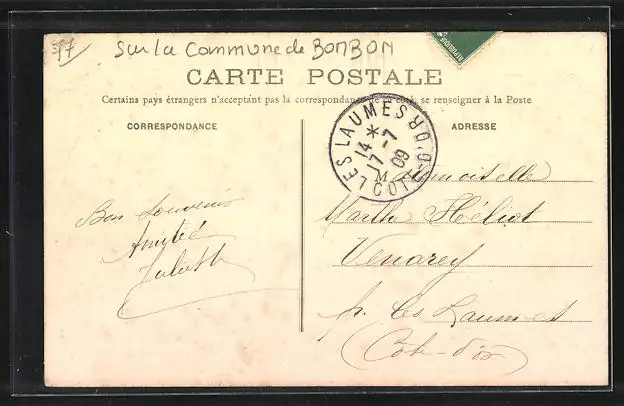 77
Sur la Commune de BOMBON
REPUBLIQUE
CARTE POSTALE
Certains pays étrangers n'acceptant pas la correspondance de ce côté, se renseigner à la Poste
CORRESPONDANCE
ADRESSE
LES LAUMES
14 *
17 - 7
09
COTE-D'OR
Bon souvenir
Amitié
Juliette
Mademoiselle
Marthe Héliot
Venarey
p. les Laumes
(Côte-d'or)